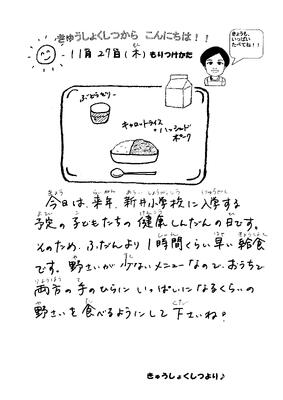 きゅうしょくしつから こんにちは！！
11月27日(木)もりつけかた
きょうも、
いっぱい
たべてね！！
ぶどうゼリー
キャロットライス
・ハッシュド
ポーク
今日は、来年、新井小学校に入学する
予定の子どもたちの健康しんだんの日です。
そのため、ふだんより1時間くらい早い給食
です。野さいが少ないメニューなので、おうちで
両方の手のひらに いっぱいになるくらいの
野さいを食べるようにして下さいね！
きゅうしょくしつより♪